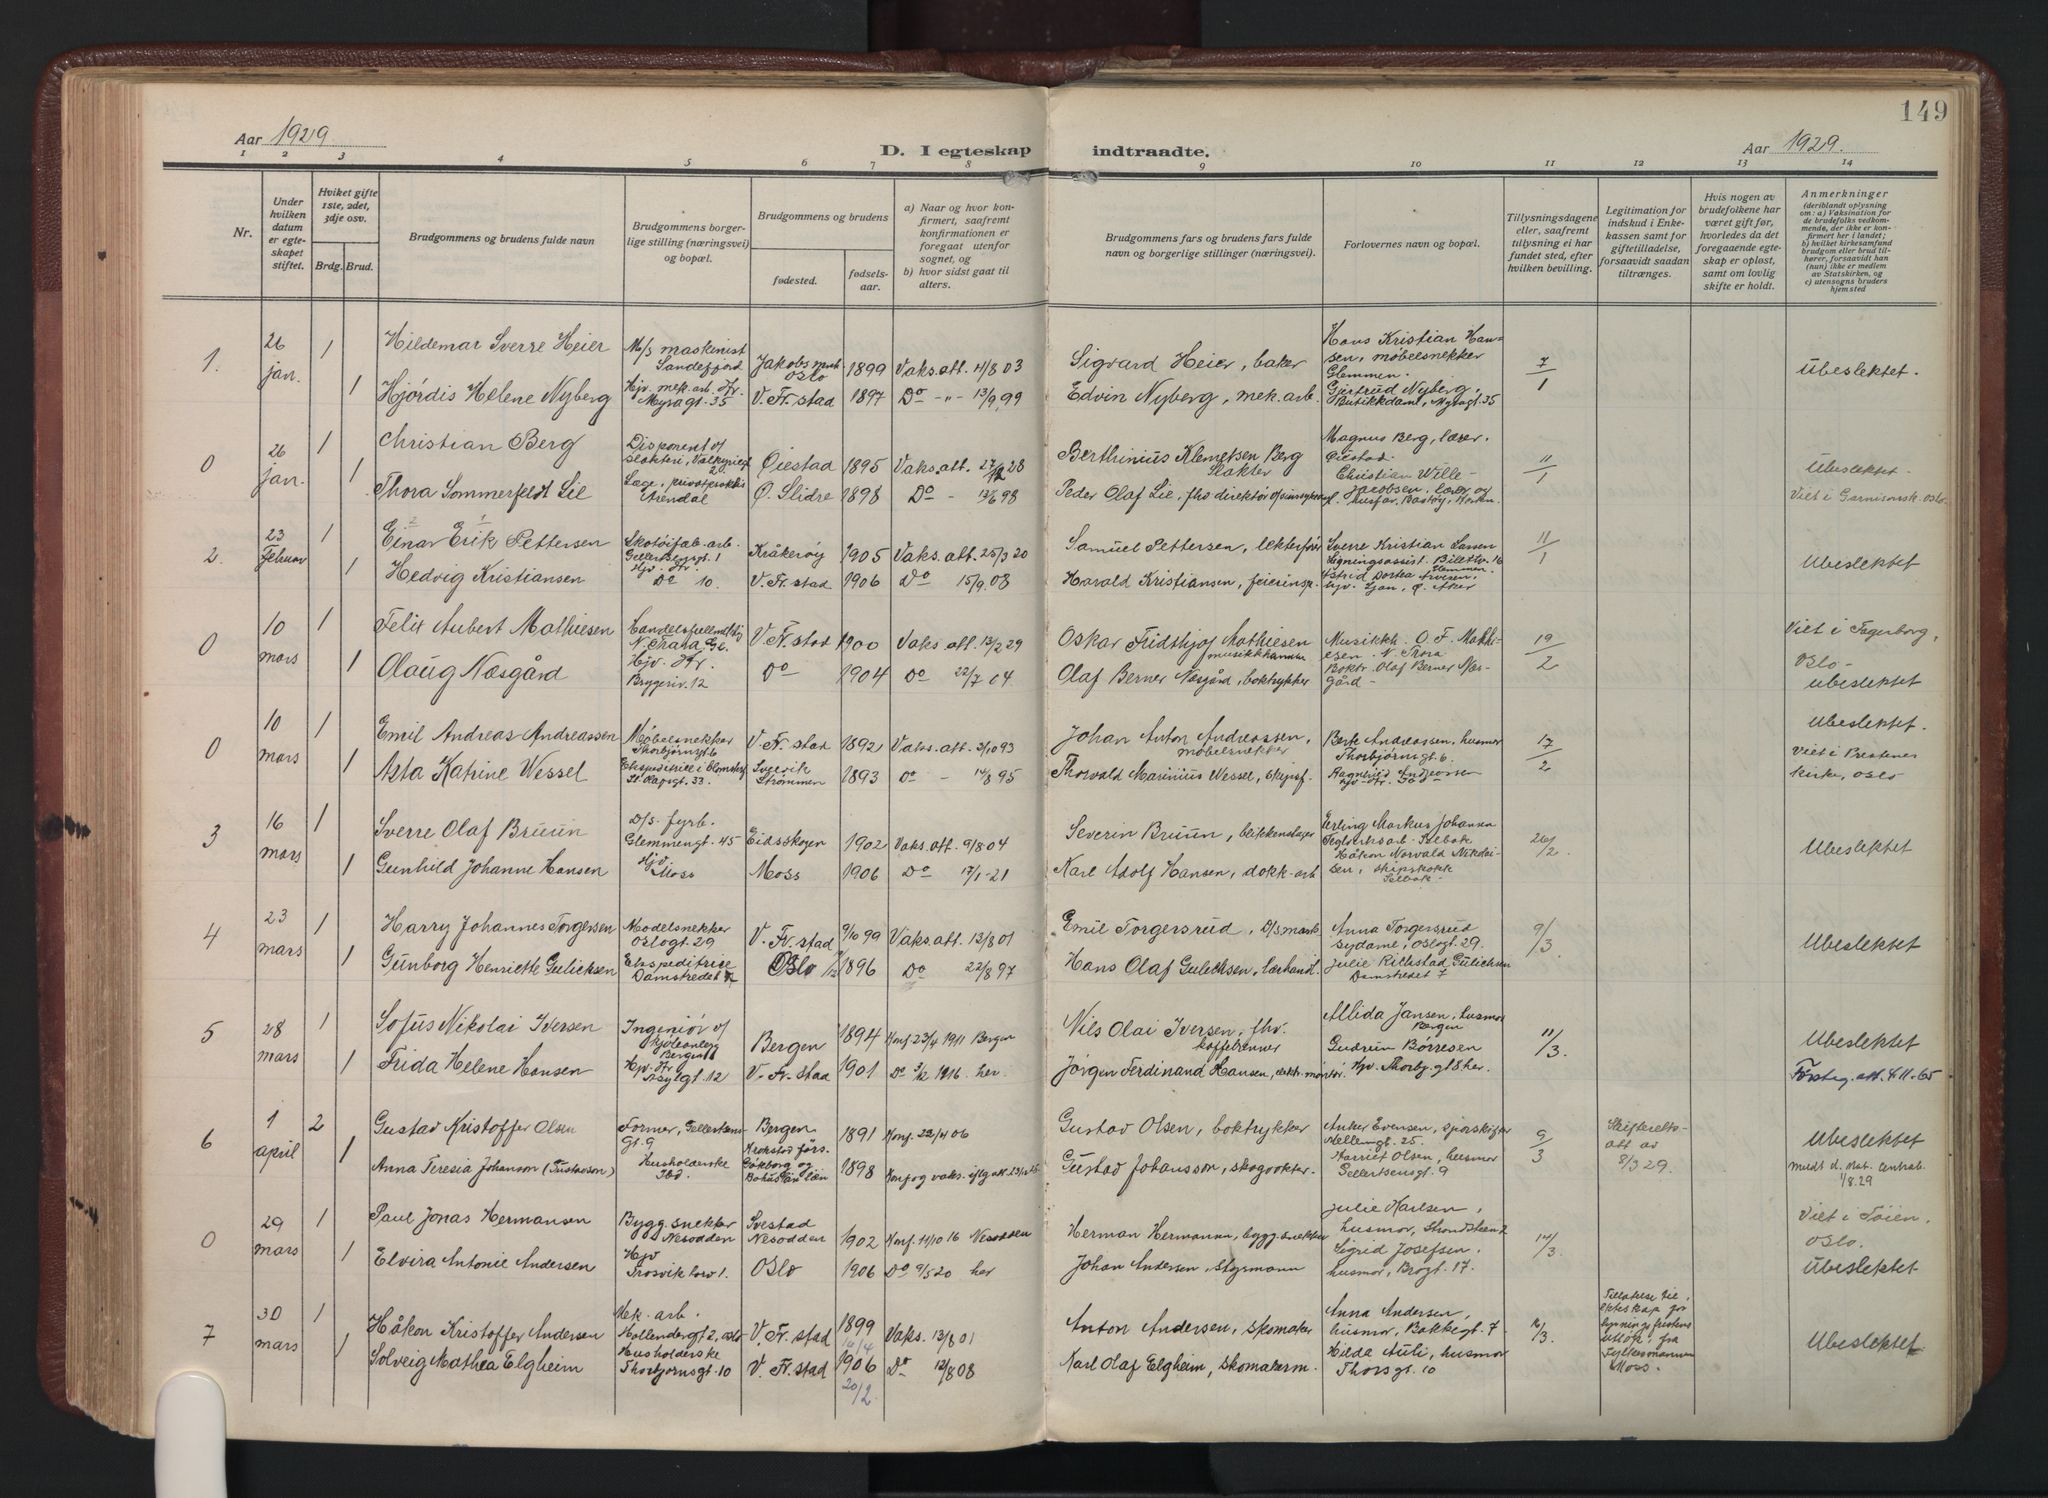 149
Aar 1929
D. I egteskap indtraadte.
Aar 1929.
1 2 3 4 5 6 7 8 9 10 11 12 13 14
Nr.
Under hvilken datum er egteskapet stiftet.
Hviket gifte 1ste, 2det, 3dje osv.
Brdg. Brud.
Brudgommens og brudens fulde navn
Brudgommens borgerlige stilling (næringsvei) og bopæl.
Brudgommens og brudens
fødested.
fødselsaar.
a) Naar og hvor konfirmert, saafremt konfirmationen er foregaat utenfor sognet, og
b) hvor sidst gaat til alters.
Brudgommens fars og brudens fars fulde navn og borgerlige stillinger (næringsvei).
Forlovernes navn og bopæl.
Tillysningsdagene eller, saafremt tillysning ei har fundet sted, efter hvilken bevilling.
Legitimation for indskud i Enkekassen samt for giftetilladelse, forsaavidt saadan tiltrænges.
Hvis nogen av brudefolkene har været gift før, hvorledes da det foregaaende egteskap er opløst, samt om lovlig skifte er holdt.
Anmerkninger
(deriblandt oplysning om: a) Vaksination for de brudefolks vedkommende, der ikke er konfirmert her i landet; b) hvilket kirkesamfund brudgom eller brud tilhører, forsaavidt han (hun) ikke er medlem av Statskirken, og c) utensogns bruders hjemsted
1. 26 jan. 1 Hildemar Sverre Heier M/S maskinist Sandefjord Jakobs mnh. Oslo 1899 Vaks. att. 11/8 03 Sigvard Heier, baker Hans Kristian Hansen, møbelsnekker Glemmen. 7/1 Ubeslektet.
1 Hjørdis Helene Nyberg Hjv. mek. arb. Hr. Myragt. 35 V. Fr. stad 1897 Do -"- 13/9 99 Edvin Nyberg, mek. arb. Gjertrud Nyberg, Butikkdame, Myragt. 35
0 26 jan. 1 Christian Berg Disponent v/ slakteri, Øiestad 1895 Vaks. att. 27/12 28 Berthinius Klemetsen Berg Slakter Magnus Berg, lærer. Øiestad. 11/1 Ubeslektet.
1 Thora Sommerfeldt Lie Læge, privatpraksis Arendal Ø. Slidre 1898 Do - 12/6 98 Peder Olaf Lie, fhv direktør Christian Wille Jacobsen, lærer og husfar, Bastøy, Horten. Viet i Garnisonsk. Oslo
2. 23 Februar 1 Einar Erik Pettersen Skotøifab. arb. Gellertsensgt. 1 Kråkerøy 1905 Vaks. att. 25/3 20 Samuel Pettersen, lekterfører Sverre Kristian Larsen Ligningsassist. Billettv. 16 Glemmen 11/1 Ubeslektet
1 Hedvig Kristiansen Hjv. Hr. Do 10. V. Fr. stad 1906 Do 15/9 08 Harald Kristiansen, feierinsp. Astrid Dortea Arvesen, hjv. Ljan, Ø. Aker
0 10 mars 1 Felix Aubert Mathiesen Handelsfullmektig N. Thora Gl. V. Fr. stad 1900 Vaks. att. 13/2 29 Oskar Fridthjof Mathiesen musikkhandler Musikkh. O. F. Mathiesen N. Thora 19/2 Viet i Fagerborg, Oslo-
1 Olaug Næsgård Hjv. Hr. Bryggeriv. 12 Do 1904 Do 22/7 04. Olaf Berner Næsgård, boktrykker Boktr. Olaf Berner Næsgård - Ubeslektet
0 10 mars 1 Emil Andreas Andreassen Møbelsnekker Thorbjørnsgt 6 V. Fr. stad 1892 Vaks. att. 3/10 93 Johan Anton Andreassen, møbelsnekker Berte Andreassen, husmor Thorbjørnsgt 6. 17/2 Ubeslektet.
1 Asta Katrine Wessel Ekspeditrise i blomsterf. St. Olafsgt. 33. Svelvik Strømmen 1893 Do - 14/8 95 Thorvald Marinius Wessel, skipsf. Ragnhild Andreassen hjv. Hr. Viet i Prestenes kirke, Oslo
3 16 mars 1 Sverre Olaf Bruun D/S. fyrb. Glemmengt. 45 Eidsskogen 1902 Vaks. att. 9/8 04 Severin Bruun, blikkenslager Erling Markus Johansen Teglverksarb. Selbak 26/2. Ubeslektet
1 Gunhild Johanne Hansen Hjv. Moss Moss 1906 Do 17/1-21 Karl Adolf Hansen, dokk-arb Håkon Norvald Nikolaisen, skipskokk Selbak -
4 23 mars 1 Harry Johannes Torgersen Modelsnekker Oslogt. 29 V. Fr. stad 9/10 99 Vaks. att. 12/8 01 Emil Torgersrud, D/S mask. Anna Torgersrud sydame, Oslogt. 29. 9/3 Ubeslektet
1 Gunborg Henriette Gulicksen Ekspeditrise Damstredet 7 Oslo 1896 Do 22/8 97 Hans Olaf Gulichsen, lærhandl. Julie Rikkstad Gulichsen Damstredet 7
5 28 mars 1 Sofus Nikolai Iversen Ingeniør v/ kjøleanlegg Bergen Bergen 1894 Konf. 23/4 1911 Bergen Nils Olai Iversen, fhv. kaffebrenner Allida Jansen, husmor Bergen 11/3. Ubeslektet
1 Frida Helene Hansen Hjv. Hr. Asylgt 12 V. Fr. stad 1901 Do 3/12 1916 her. Jørgen Ferdinand Hansen, elektr. montør. Gudrun Børresen Hjv. Thorbj. gt 8 her. Førsteg. att. 4.11.65
6 1 april 2 Gustav Kristoffer Olsen Former, Gellertsensgt. 9 Bergen 1891 Konf. 22/4 06 Gustav Olsen, boktrykker Anker Evensen, sporskifter Mellemgt. 25. 9/3 Skifteretts-att av 8/3 29. Ubeslektet
1 Anna Teresia Johanson (Gustavson) Husholderske Ibd. Krokstad förs. Göteborg og Bohuslän län 1898 Konf og vaks. iflg att. 23/1 Gustav Johansson, skogvokter. Harriet Olsen, husmor Gellertsensgt. 9 meldt d. stat. Centralb. 1/8.29
0 29 mars 1 Paul Jonas Hermansen Byggsnekker Nesodden Svestad Nesodden 1902 Konf. 11/10 16 Nesodden Herman Hermansen, bygg.snekker Julie Karlsen, husmor, 14/3. Viet i Tøien, Oslo.
1 Elvira Antonie Andersen Hjv Trosvik torv 1. Oslo 1906 Do 9/5 20 her Johan Andersen, styrmann Sigrid Josefsen, husmor, Brogt. 17. Ubeslektet
7 30 mars 1 Håkon Kristoffer Andersen Mek. arb. Møllendergt 2, Oslo V. Fr. stad 1899 14/4 Vaks. 13/8 01 Anton Andersen, skomaker Anna Andersen, husmor, Bakkegt. 7 16/3. Tillatelse til ekteskap før lysningsfristens utløp, fra Fylkesmannen Moss. Ubeslektet
1 Solveig Mathea Elgheim Husholderske Thorbjørnsgt. 10 V. Fr. stad 1906 20/2. Do 12/8 08 Karl Olaf Elgheim, skomakerm. Hilda Auli, husmor Thorsgt. 10